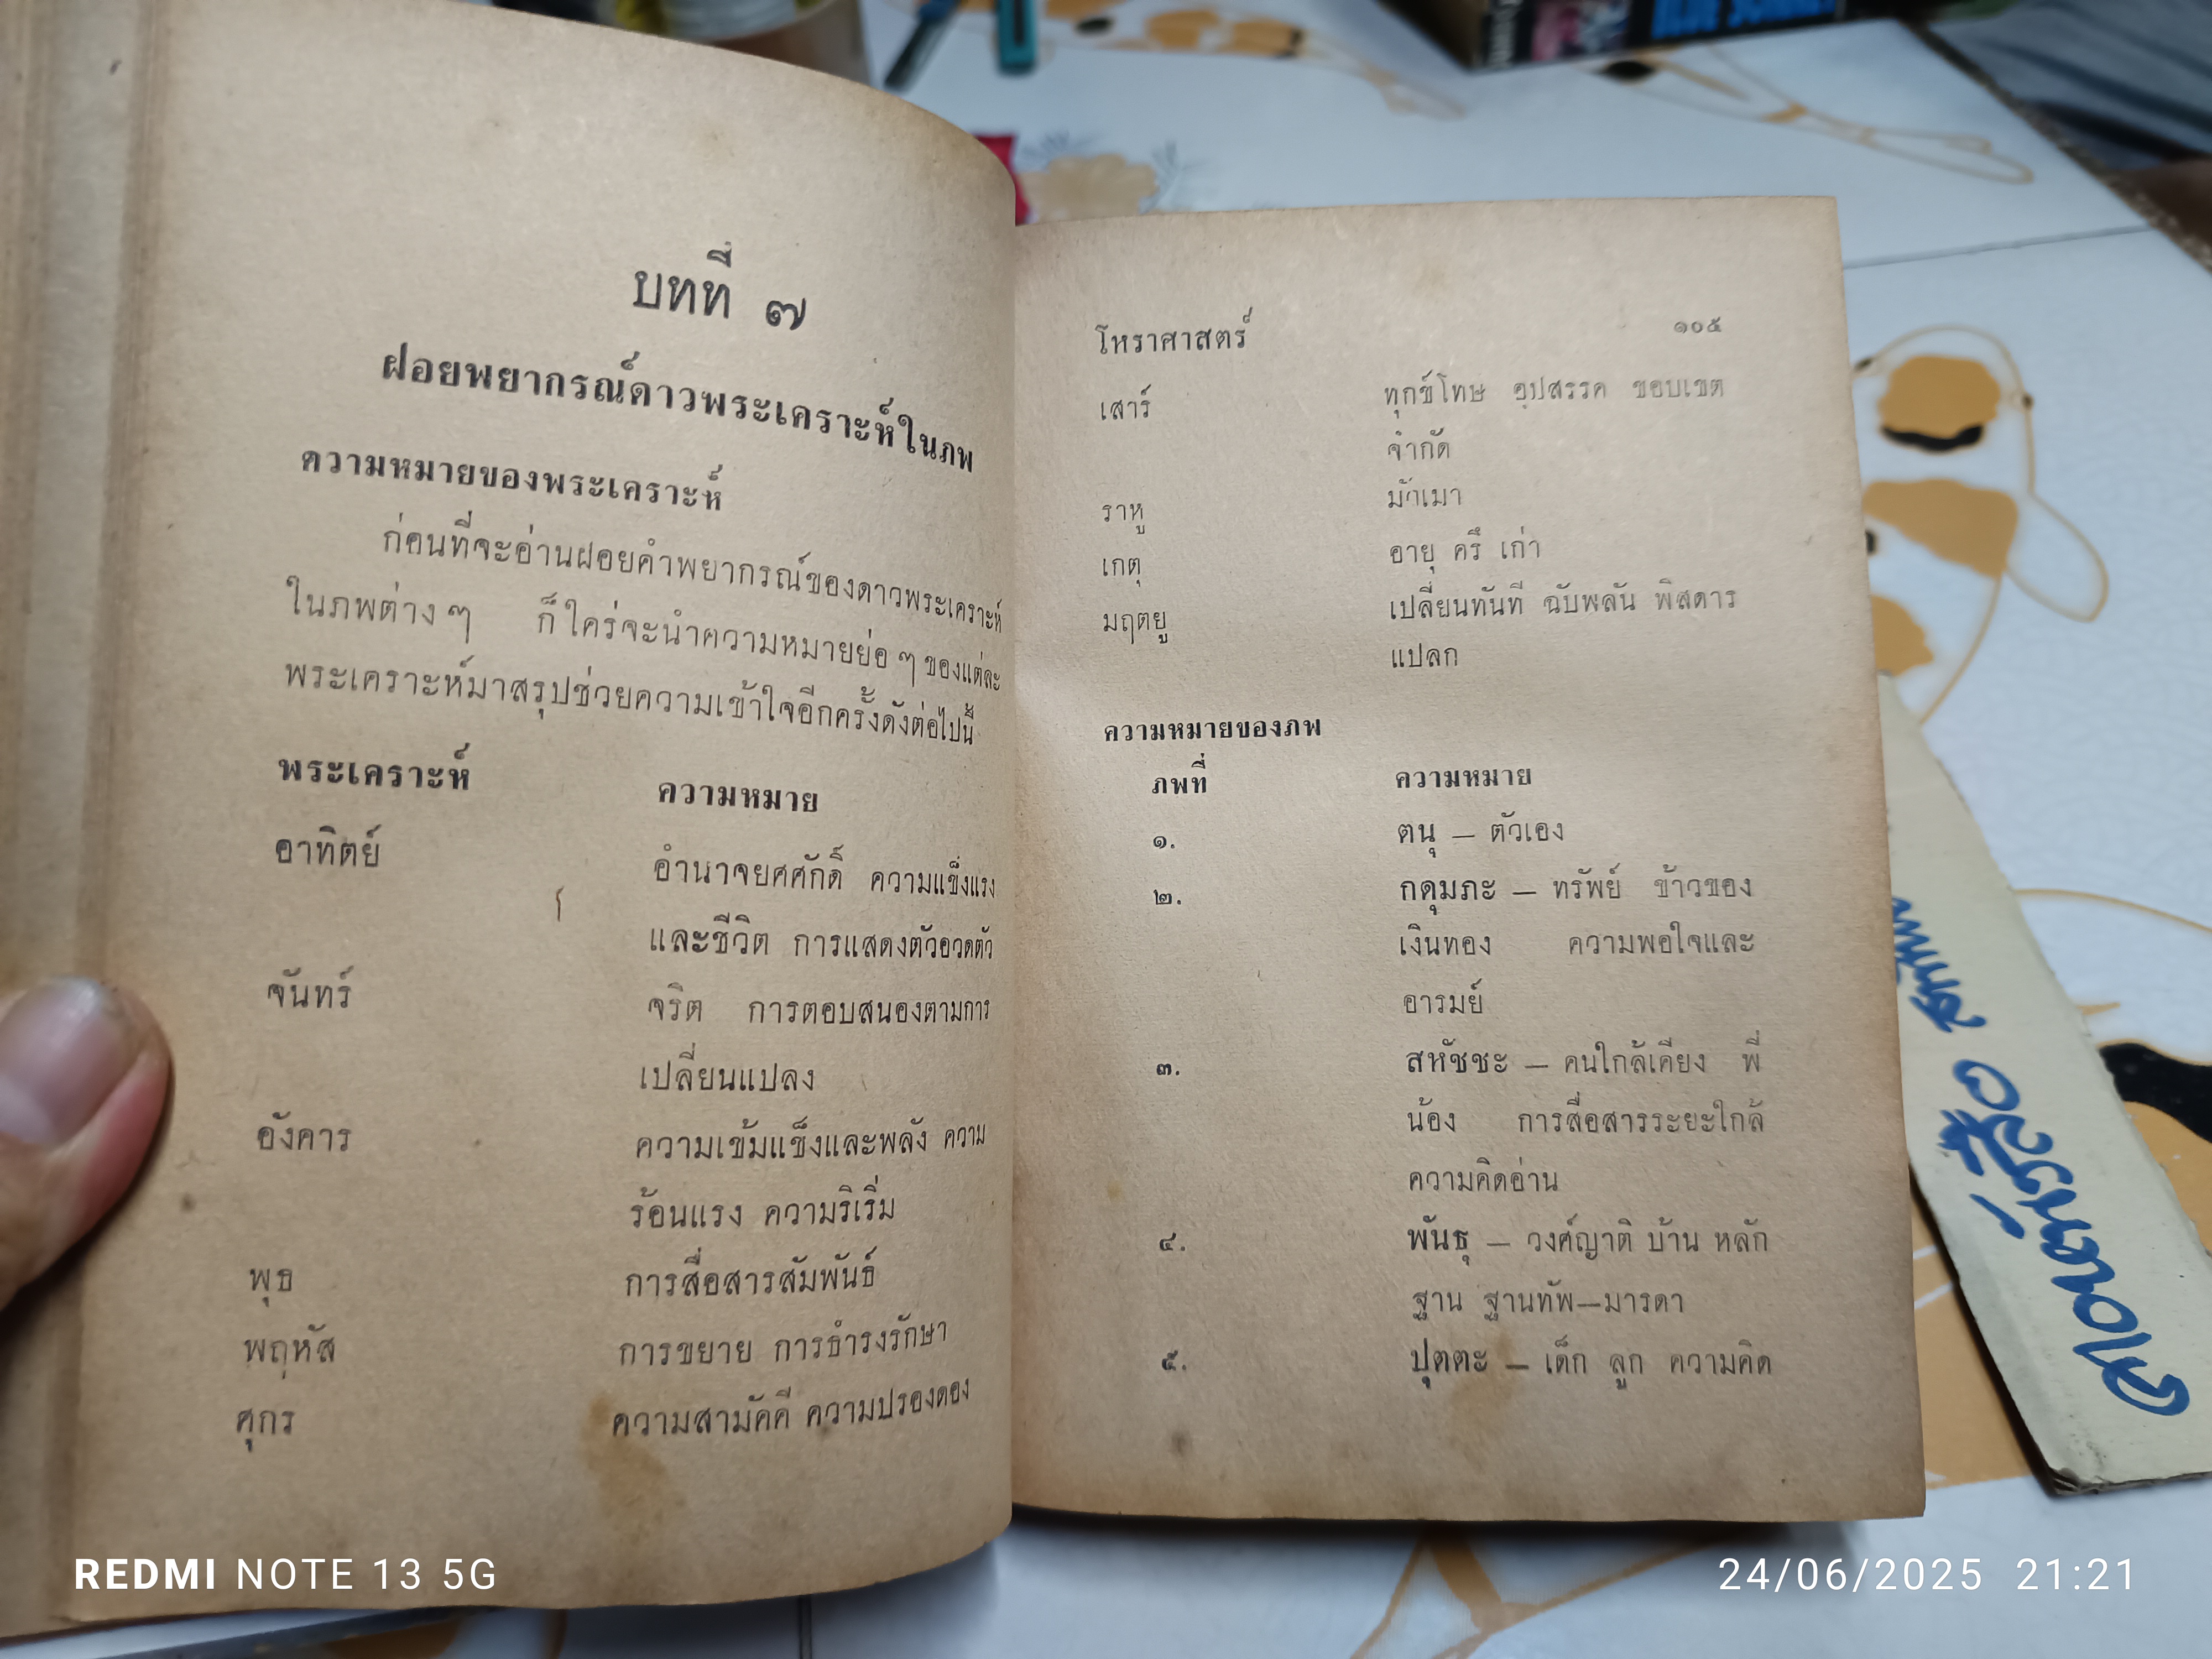 บทที่ ๗
ฝอยพยากรณ์ดาวพระเคราะห์ในภพ
ความหมายของพระเคราะห์
ก่อนที่จะอ่านฝอยคำพยากรณ์ของดาวพระเคราะห์
ในภพต่าง ๆ ก็ใคร่จะนำความหมายย่อ ๆ ของแต่ละ
พระเคราะห์มาสรุปช่วยความเข้าใจอีกครั้งดังต่อไปนี้
พระเคราะห์ ความหมาย
อาทิตย์ อำนาจยศศักดิ์ ความแข็งแรง
และชีวิต การแสดงตัวอวดตัว
จันทร์ จริต การตอบสนองตามการ
เปลี่ยนแปลง
อังคาร ความเข้มแข็งและพลัง ความ
ร้อนแรง ความริเริ่ม
พุธ การสื่อสารสัมพันธ์
พฤหัส การขยาย การธำรงรักษา
ศุกร ความสามัคคี ความปรองดอง
โหราศาสตร์ ๑๐๕
เสาร์ ทุกข์โทษ อุปสรรค ขอบเขต
จำกัด
ราหู มัวเมา
เกตุ อายุ ครึ เก่า
มฤตยู เปลี่ยนทันที ฉับพลัน พิสดาร
แปลก
ความหมายของภพ
ภพที่ ความหมาย
๑. ตนุ — ตัวเอง
๒. กดุมภะ — ทรัพย์ ข้าวของ
เงินทอง ความพอใจและ
อารมย์
๓. สหัชชะ — คนใกล้เคียง พี่
น้อง การสื่อสารระยะใกล้
ความคิดอ่าน
๔. พันธุ — วงศ์ญาติ บ้าน หลัก
ฐาน ฐานทัพ—มารดา
๕. ปุตตะ — เด็ก ลูก ความคิด
REDMI NOTE 13 5G
24/06/2025 21:21